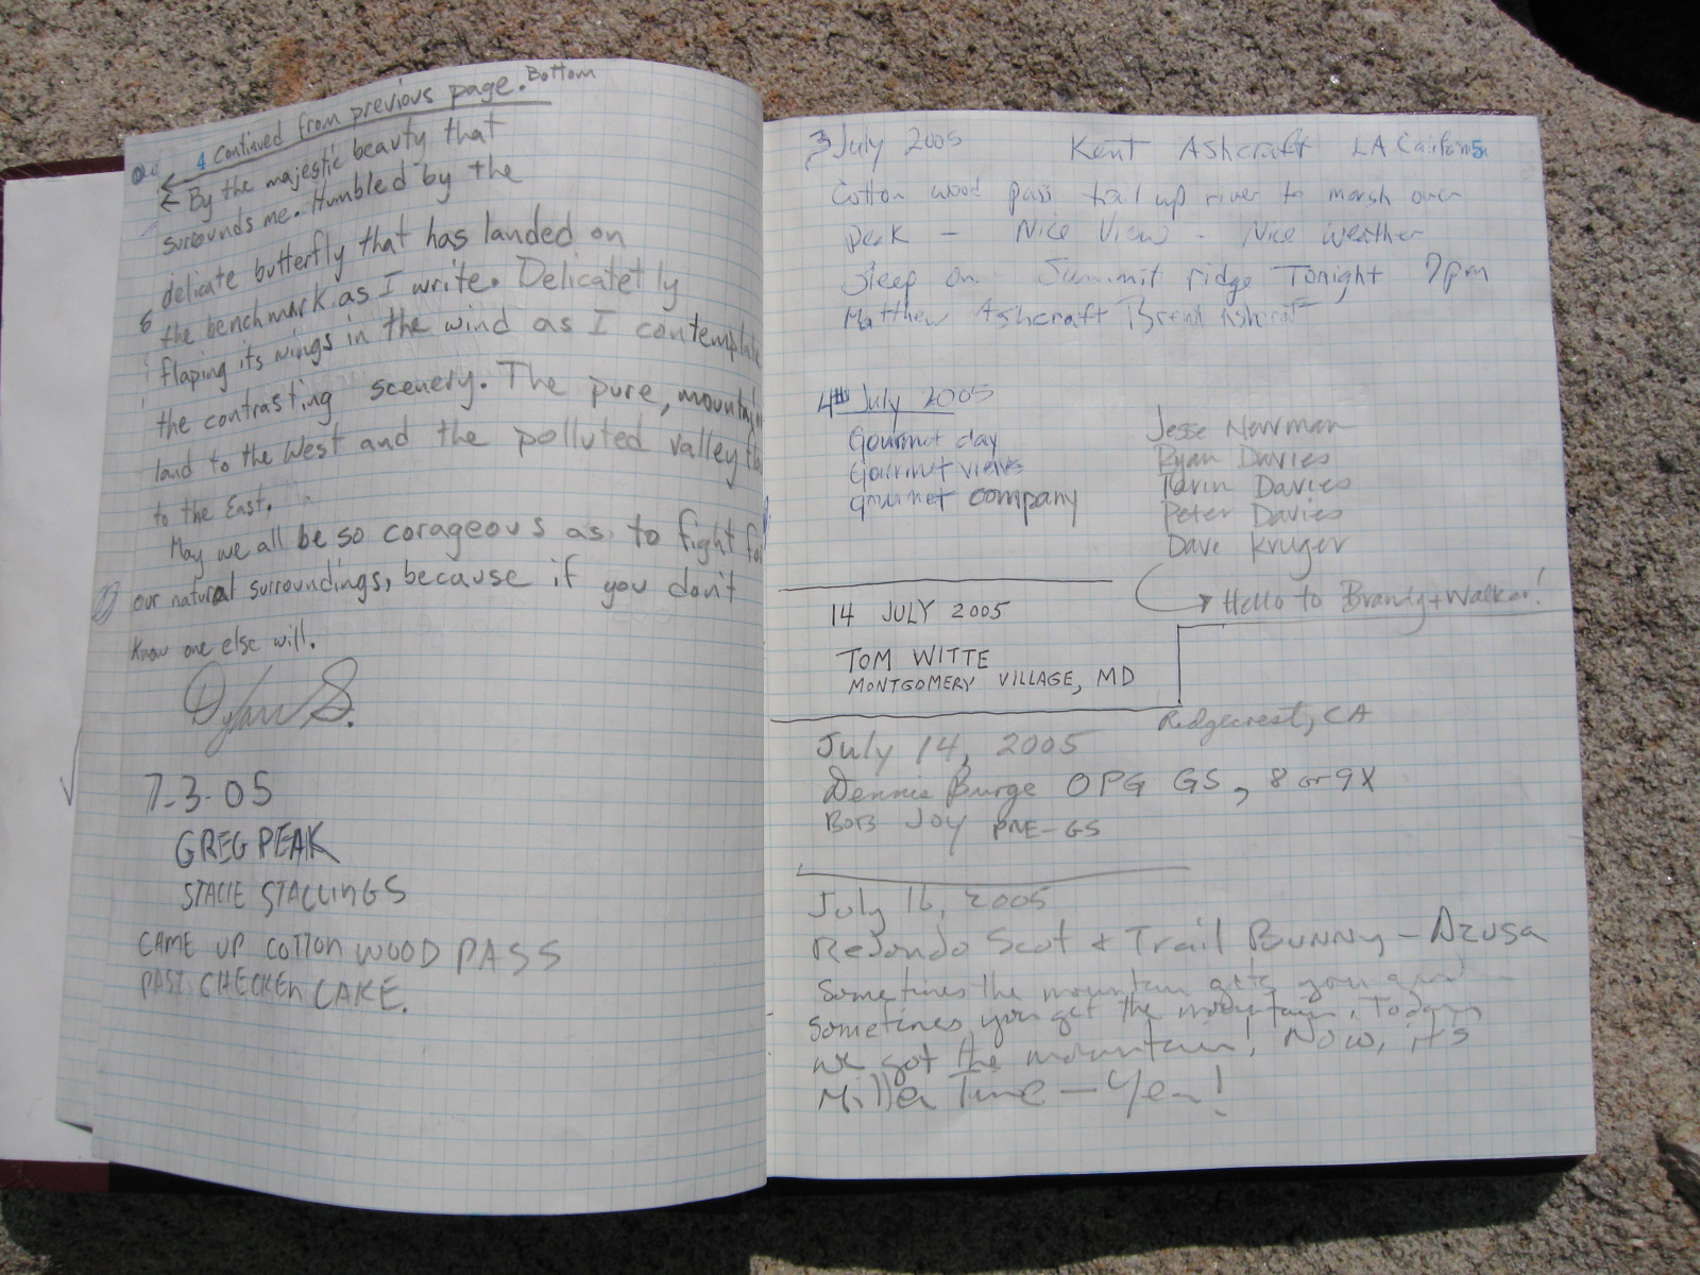 4 Continued from previous page. Bottom
By the majestic beauty that
surrounds me. Humbled by the
delicate butterfly that has landed on
6 the benchmark as I write. Delicatetly
flaping its wings in the wind as I contemplate
the contrasting scenery. The pure, mountain
land to the West and the polluted valley
to the East.
May we all be so corageous as to fight for
our natural surroundings, because if you don't
know one else will.
Dylan S.
7-3-05
GREG PEAK
STACIE STALLINGS
CAME UP COTTON WOOD PASS
PAST CHICKEN LAKE.
5
3 July 2005 Kent Ashcraft LA California
Cotton wood pass trail up river to marsh over
peak - Nice View - Nice weather
Sleep on Summit ridge Tonight 7pm
Matthew Ashcraft Brent Ashcraft
4th July 2005
Gourmet day
Gourmet views
gourmet company
Jesse Newman
Ryan Davies
Davies
Peter Davies
Dave Kruger
Hello to Brandy + Walker!
14 JULY 2005
TOM WITTE
MONTGOMERY VILLAGE, MD
Ridgecrest, CA
July 14, 2005
Dennis Burge OPG GS, 8 or 9X
BOB JOY PRE-GS
July 16, 2005
Redondo Scot + Trail Bunny - Azusa
Sometimes the mountain gets you and
sometimes you get the mountain. Today,
we got the mountain! Now, it's
Miller Time - Yea!